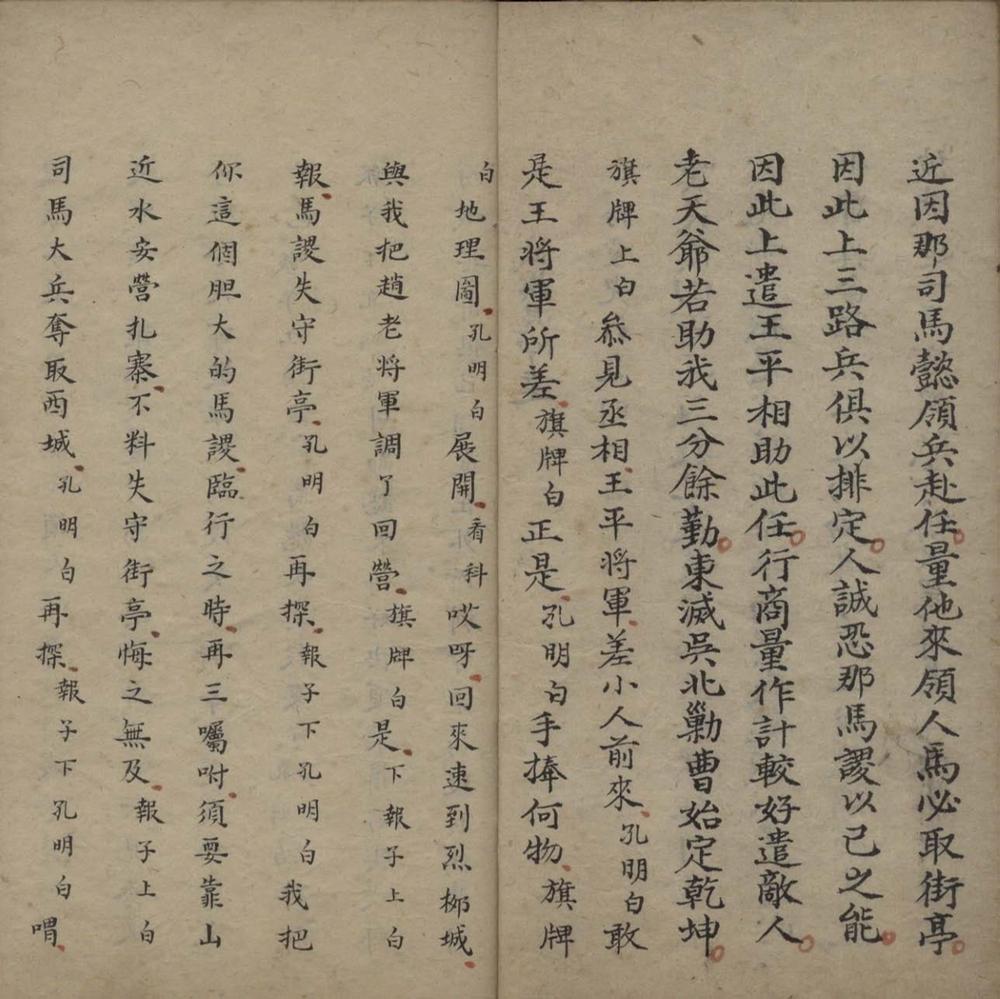 近因那司馬懿領兵赴任量他來領人馬必取街亭
因此上三路兵俱以排定人誠恐那馬謖以己之能
因此上遣王平相助此任行商量作計較好遣敵人
老天爺若助我三分餘勤東滅吳北勦曹始定乾坤
旗牌上白叅見丞相王平將軍差小人前來孔明白敢
是王將軍所差旗牌白正是孔明白手捧何物旗牌
白地理圖孔明白展開看科哎呀回來速到烈栁城
與我把趙老將軍調了回營旗牌白是下報子上白
報馬謖失守街亭孔明白再探報子下孔明白我把
你這個胆大的馬謖臨行之時再三囑咐須要靠山
近水安營扎寨不料失守街亭悔之無及報子上白
司馬大兵奪取西城孔明白再探報子下孔明白喟